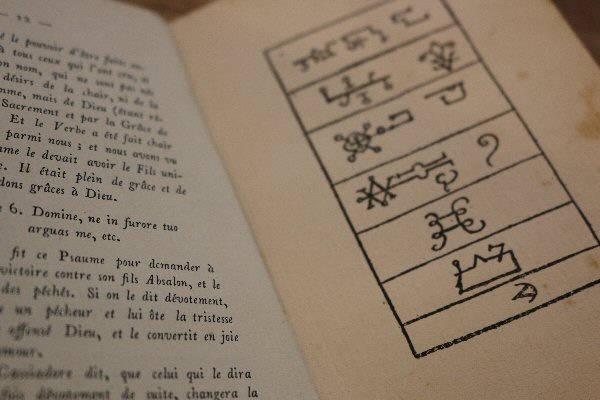 — 12 —
é le pouvoir d'être faits en-
à tous ceux qui l'ont cru, et
on nom, qui ne sont pas nés
désirs de la chair, ni de la
mme, mais de Dieu (étant
Sacrement et par la Grâce de
Et le Verbe a été fait chair
parmi nous ; et nous avons vu
me le devait avoir le Fils uni-
e. Il était plein de grâce et de
dons grâces à Dieu.
e 6. Domine, ne in furore tuo
arguas me, etc.
fit ce Psaume pour demander à
victoire contre son fils Absalon, et le
des péchés. Si on le dit dévotement,
e un pécheur et lui ôte la tristesse
offensé Dieu, et le convertit en joie
amour.
Cassiodore dit, que celui qui le dira
fois dévotement de suite, changera la